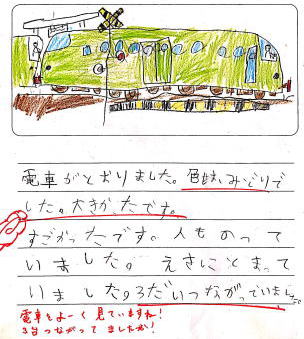 電車がとおりました。色はいみどりで
した。大きかったです。
すごかったです。人ものって
いました。えきにとまって
いました。3だいつながっていました。
電車をよーく見ていますね!
3台つながってましたか!